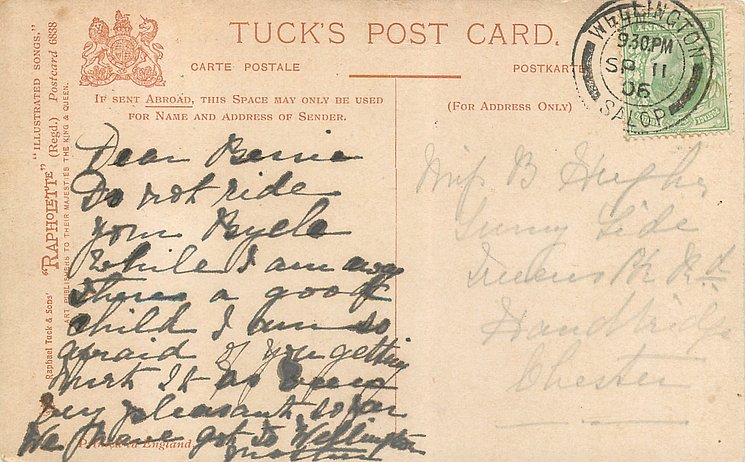 TUCK'S POST CARD.
CARTE POSTALE
POSTKARTE
IF SENT ABROAD, THIS SPACE MAY ONLY BE USED
FOR NAME AND ADDRESS OF SENDER.
(FOR ADDRESS ONLY)
WELLINGTON
930PM
SP 11
06
SALOP
Raphael Tuck & Sons' "RAPHOLETTE" "ILLUSTRATED SONGS."
(Regd.) Postcard 6838
ART PUBLISHERS TO THEIR MAJESTIES THE KING & QUEEN.
Dear Bernie
Do not ride
your Bycle
while I am away
theres a good
child I am so
afraid of you getting
hurt It as been
very pleasant so far
We have got to Wellington
Mother
Printed in England.
Miss B Hughes
Sunny Side
Queens Pk Rd
Handbridge
Chester